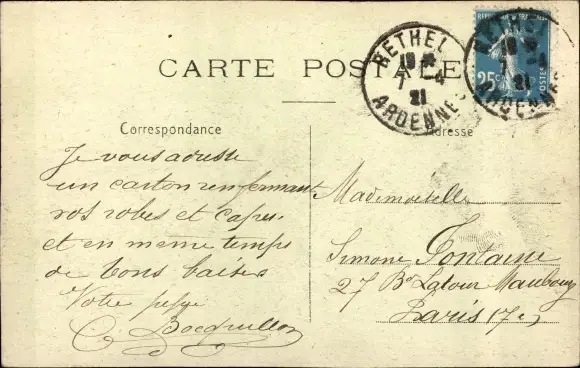 CARTE POSTALE
RETHEL
18
7 - 4
21
ARDENNES
RETHEL
18
7 - 4
21
ARDENNES
25c
POSTES
Correspondance
Adresse
Je vous adresse
un carton renfermant
vos robes et capes.
et en même temps
de bons baisers
Votre
C. Bocquillon
Mademoiselle
Simone Fontaine
27 Bd Latour Maubourg
Paris (7e)